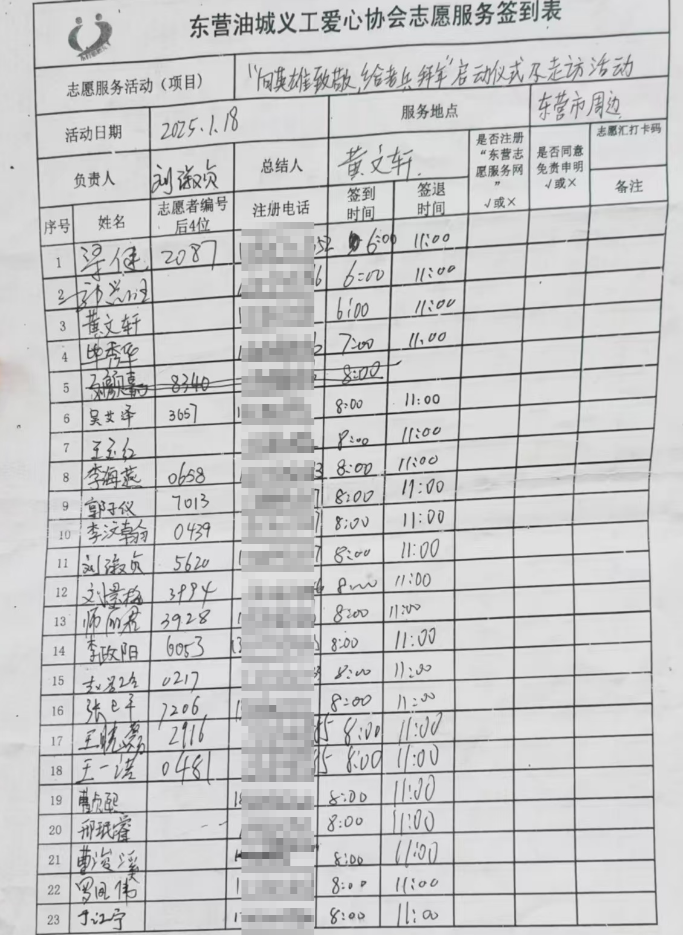 东营油城义工爱心协会志愿服务签到表
志愿服务活动（项目） "向英雄致敬，给老兵拜年"启动仪式及走访活动
活动日期 2025.1.18 服务地点 东营市周边
负责人 刘淑贞 总结人 黄文轩 是否注册"东营志愿服务网" √或× 是否同意免责申明 √或× 志愿汇打卡码
序号 姓名 志愿者编号后4位 注册电话 签到时间 签退时间 备注
1 梁健 2087 52 6:00 11:00
2 6 6:00 11:00
3 黄文轩 6:00 11:00
4 毕秀华 2 7:00 11:00
5 8340 8:00
6 吴安泽 3657 1 8:00 11:00
7 王玉红 8:00 11:00
8 李海燕 0658 3 8:00 11:00
9 郭子仪 7013 7 8:00 11:00
10 李汶翰 0439 1 8:00 11:00
11 刘淑贞 5620 7 8:00 11:00
12 刘景梅 3994 8:00 11:00
13 师丽君 3928 8:00 11:00
14 李政阳 6053 13 8:00 11:00
15 0217 8:00 11:00
16 7206 8:00 11:00
17 王晓磊 2916 35 8:00 11:00
18 王一诺 0481 35 8:00 11:00
19 曹贞熙 18 8:00 11:00
20 邢珉睿 8:00 11:00
21 曹浚溪 8:00 11:00
22 罗国伟 1 8:00 11:00
23 于江宁 1 8:00 11:00